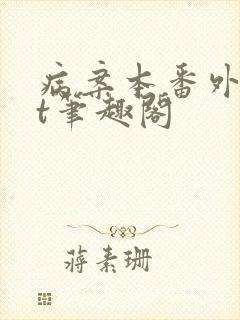 病案本番外
t笔趣阁
蒋素珊